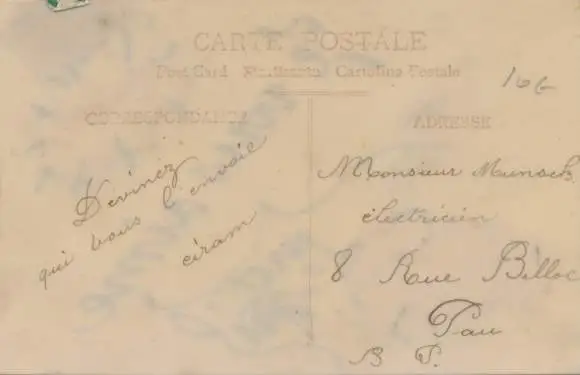 CARTE POSTALE
Post Card Cartolina Postale
CORRESPONDANCE
ADRESSE
106
Devinez
qui vous l'envoie
ciram
Monsieur Munsch
électricien
8 Rue Billoc
Pau
B P.